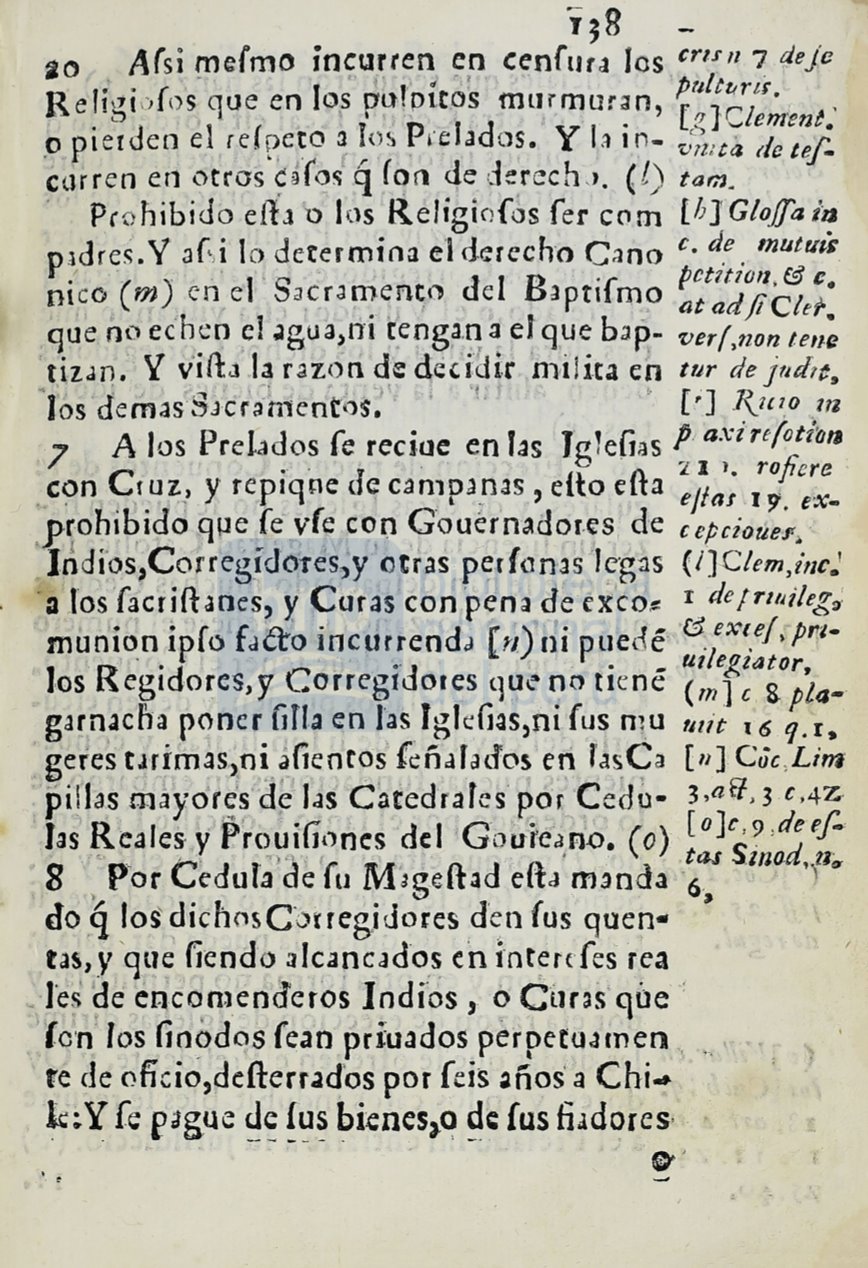 138
20 Aſsi meſmo incurren en cenſura los
Religioſos que en los pulpitos murmuran,
o pierden el reſpeto a los Prelados. Y la in-
curren en otros caſos q̃ ſon de derecho. (l)
Prohibido eſta o los Religioſos ſer com
padres.Y aſsi lo determina el derecho Cano
nico (m) en el Sacramento del Baptiſmo
que no echen el agua,ni tengan a el que bap-
tizan. Y viſta la razon de decidir milita en
los demas Sacramentos.
7 A los Prelados ſe reciue en las Igleſias
con Cruz, y repiqne de campanas , eſto eſta
prohibido que ſe vſe con Gouernadores de
Indios,Corregidores,y otras perſonas legas
a los ſacriſtanes, y Curas con pena de exco-
munion ipſo facto incurrenda [n) ni puedẽ
los Regidores,y Corregidores que no tienẽ
garnacha poner ſilla en las Igleſias,ni ſus mu
geres tarimas,ni aſientos ſeñalados en lasCa
pillas mayores de las Catedrales por Cedu-
las Reales y Prouiſiones del Gouierno. (o)
8 Por Cedula de ſu Mageſtad eſta manda
do q̃ los dichosCorregidores den ſus quen-
tas,y que ſiendo alcancados en intereſes rea
les de encomenderos Indios , o Curas que
ſon los ſinodos ſean priuados perpetuamen
te de oficio,deſterrados por ſeis años a Chi-
le:Y ſe pague de ſus bienes,o de ſus fiadores
cris n 7 de ſe
pulturis.
[g] Clement.
vnica de teſ-
tam.
[h] Gloſſa in
c. de mutuis
petition. & c.
at ad ſi Cler.
verſ,non tene
tur de judit,
[i] Ricio in
p axi reſotion
211. rofiere
eſtas 19. ex-
cepciones.
(l] Clem,inc.
1 de priuileg,
& exceſ, pri-
uilegiator,
(m] c 8 pla-
uit 16 q.1,
[n] Cõc.Lim
3,act,3 c,42
[o]c,9,de eſ-
tas Sinod,n,
6,